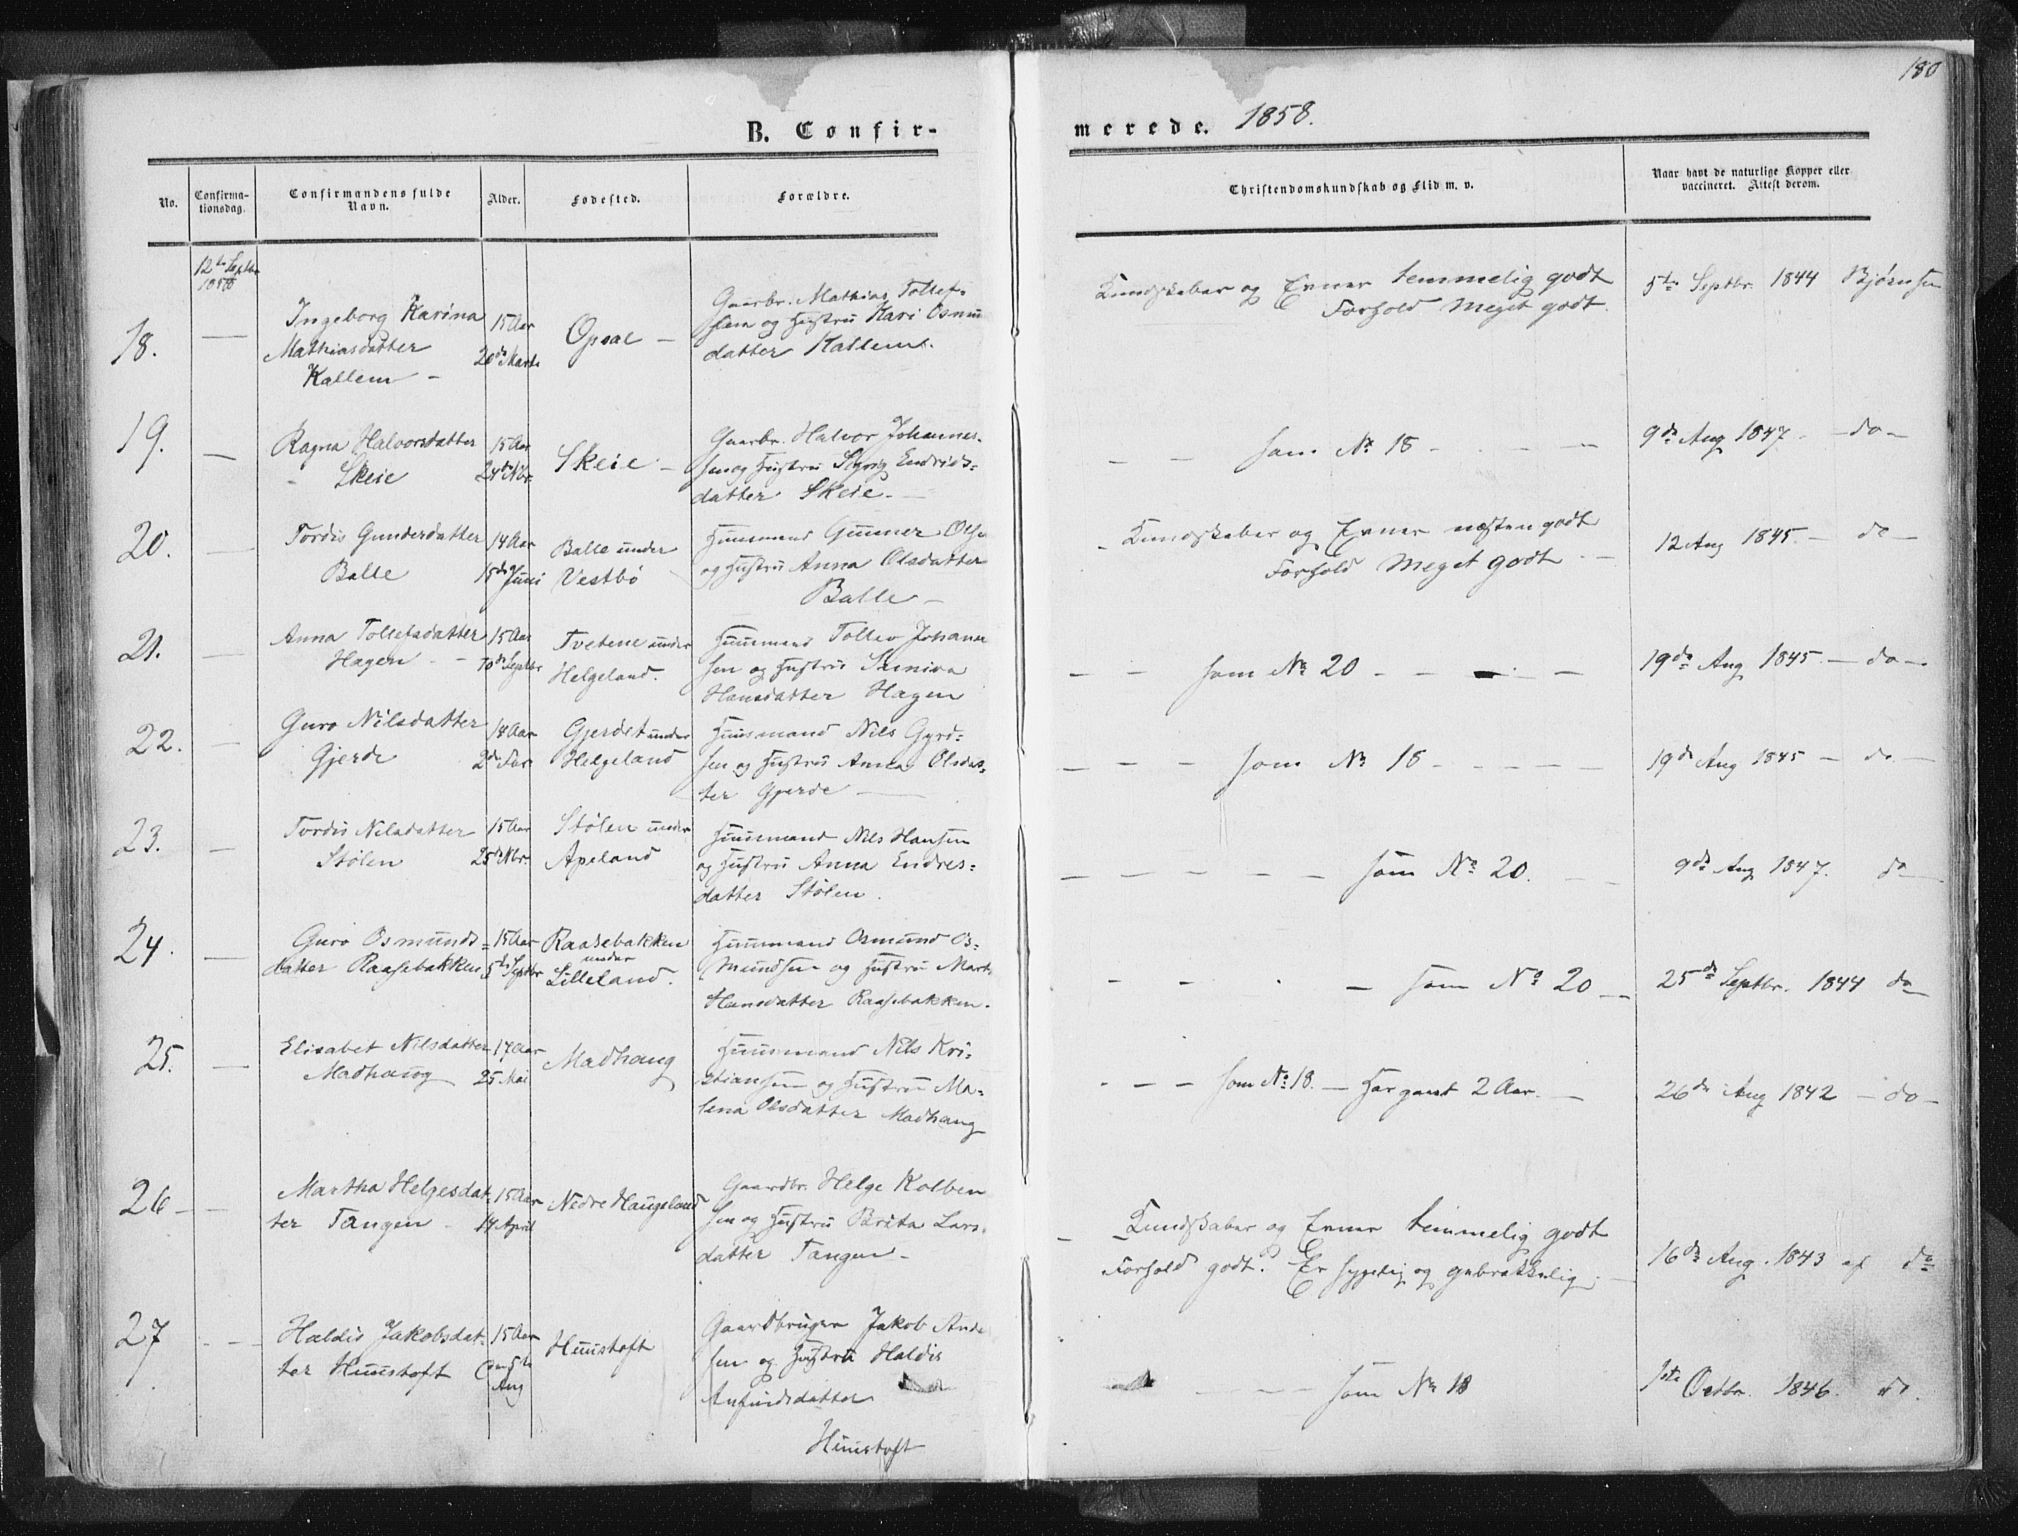 180
B. Confir-
merede. 1858.
No.
Confirma-
tionsdag.
Confirmandens fulde
Navn.
Alder.
Fødested.
Forældre.
Christendomskundskab og Flid m. v.
Naar havt de naturlige Kopper eller
vaccineret. Attest derom.
12te Septbr
1858
18.
Ingeborg Karina
Mathiasdatter
Kallem -
15 Aar
20de Marts
Opsal -
Gaardbr. Mathias Tollef-
sen og Hustru Kari Osmu
datter Kallem.
Kundskaber og Evner temmelig godt
Forhold Meget godt.
5te Septbr. 1844 Bjørnsen
19.
Ragna Halvorsdatter
- Skeie
15 Aar
24de Nbr
Skeie -
Gaardbr. Halvor Johannes-
sen og Hustru Endrids-
datter Skeie. -
- - som No 18 - - - -
9de Aug 1847. - do -
20.
Tordis Gundersdatter
Balle
14 Aar
15de Juni
Balle under
Vestbö
Huusmand Gunner Olsen
og Hustru Anna Olsdatter
Balle -
- Kundskaber og Evner næsten godt
Forhold Meget godt - -
12 Aug 1845. - do -
21.
Anna Tollefsdatter
Hagen - -
15 Aar
10de Septbr
Tvetene under
Helgeland.
Huusmand Tollev Johanne
sen og Hustru Suniva
Hansdatter Hagen
- - som No 20 - - - - -
19de Aug 1845. - do -
22.
Guro Nilsdatter
Gjerde
18 Aar
2de
Gjerdet under
Helgeland
Huusmand Nils Gyrd-
sen og Hustru Anna Olsdat-
ter Gjerde -
- - - som No 18 - - - - -
19de Aug 1845 - do -
23.
Tordis Nilsdatter
Stölen
15 Aar
25de Nbr.
Stölen under
Apeland
Huusmand Nils Hansen
og Hustru Anna Endres-
datter Stölen.
- - - - - som No 20. - -
9de Aug 1847. do
24.
Guro Osmunds-
datter Raasebakken
15 Aar
5te Septbr
Raasebakken
under
Lilleland.
Huusmand Osmund Os-
mundsen og Hustru Mart
Hansdatter Raasebakken.
- - - - som No 20 - -
25de Septbr. 1844 do
25.
Elisabet Nilsdatter
Madhaug
17 Aar
25 Mai
Madhaug
Huusmand Nils Kri-
stiansen og Hustru Ma-
lena Olsdatter Madhaug
- - - som No 18. - Har gaaet 2 Aar. -
26de Aug 1842 - do -
26 -
Martha Helgesdat-
ter Tangen -
15 Aar
14 April
Nedre Haugeland
Gaardbr. Helge Kolben
sen og Hustru Brita Lars-
datter Tangen -
- Kundskaber og Evner temmelig godt
Forhold godt. Er sygelig og gebrækkelig. -
16de Aug. 1843 af do
27
Haldis Jakobsdat-
ter Huustoft
15 Aar
5te
Aug
Huustoft
Gaardbruger Jakob Ande
sen og Hustru Haldis
Anfindsdatter
Huustoft
- - - - som No 18
1ste Octbr. 1846. do.